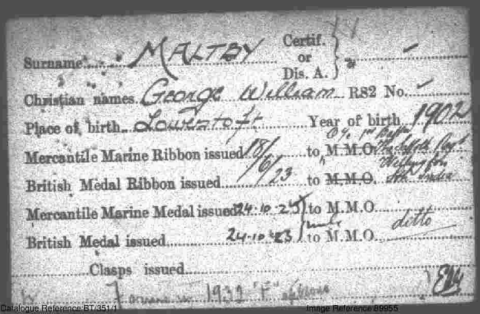 Surname MALTBY Certif. or Dis. A. } -
Christian names George William R82 No. -
Place of birth Lowestoft Year of birth 1902
Mercantile Marine Ribbon issued 18/6/23 to M.M.O.
British Medal Ribbon issued to M.M.O.
Mercantile Marine Medal issued 24-10-23 to M.M.O.
British Medal issued 24-10-23 to M.M.O. ditto
Clasps issued
1932 "F"
Catalogue Reference:BT/351/1 Image Reference:89955